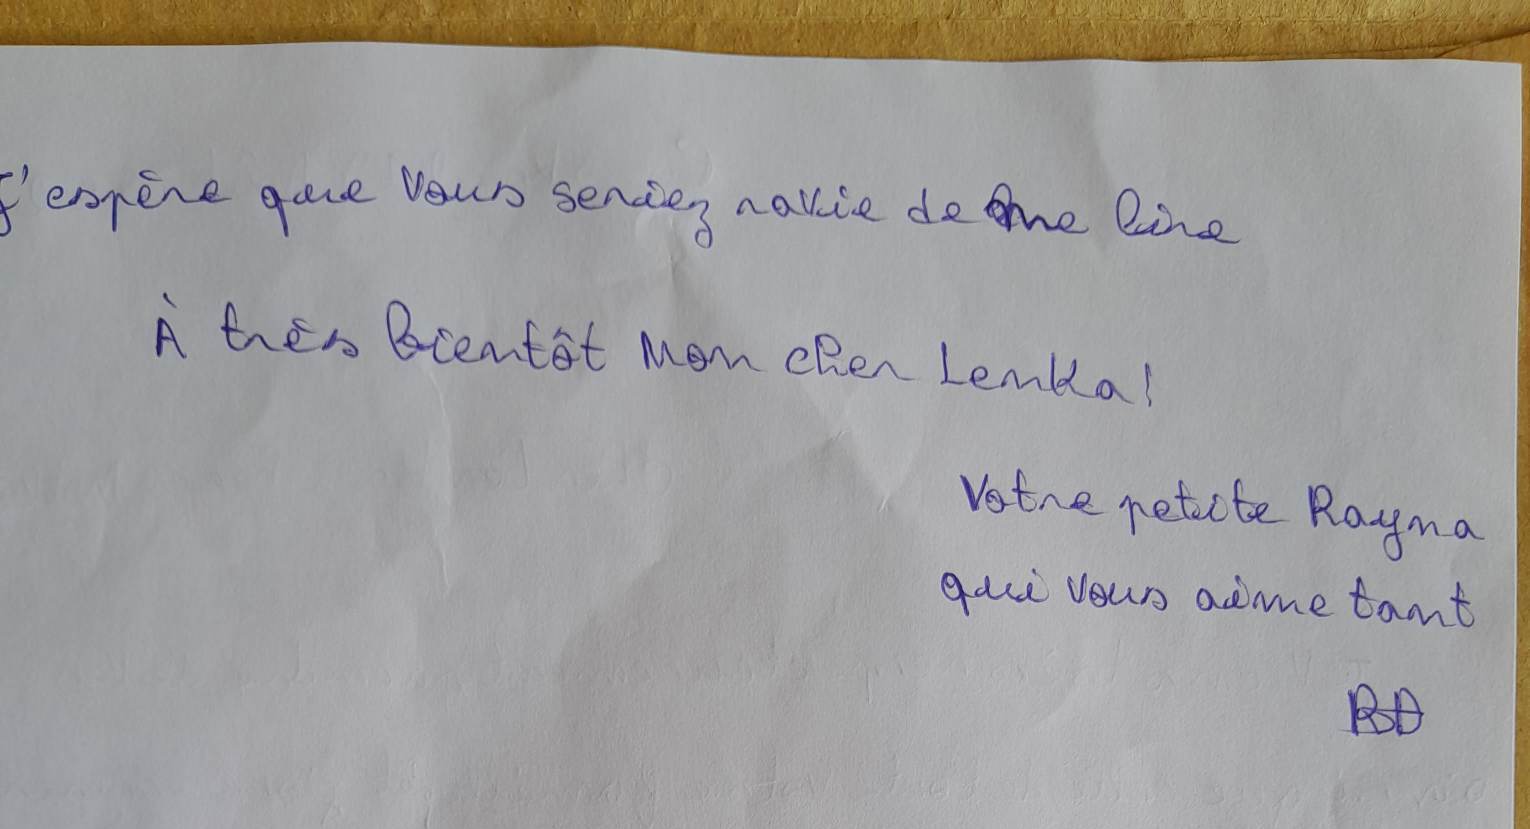 J'espère que vous seriez ravie de me lire
À très bientôt Mon cher Lenka!
Votre petite Rayma
qui vous aime tant
RD